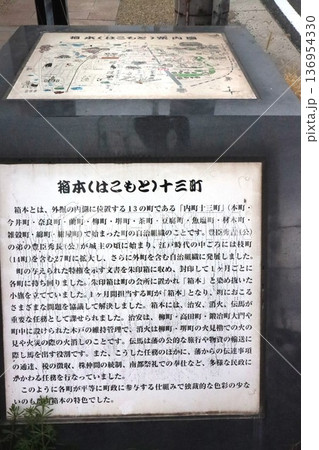 箱本(はこもと)案内図
箱本(はこもと)十三町
箱本とは、外堀の内側に位置する13の町である「内町十三町」(本町・
今井町・奈良町・藺町・柳町・堺町・茶町・豆腐町・魚塩町・材木町・
雑穀町・綿町・紺屋町)で始まった町の自治組織のことです。豊臣秀吉(公)
の弟の豊臣秀長(公)が城主の頃に始まり、江戸時代の中ごろには枝町
(14町)を含む27町に拡大し、さらに外町を含む自治組織に発展しました。
町の与えられた特権を示す文書を朱印箱に収め、封印して1ヶ月ごとに
各町に持ち回りました。朱印箱は町の会所に置かれ「箱本」と染め抜いた
小旗を立てていました。1ヶ月間担当する町が「箱本」となり、町におこる
さまざまな問題を協議して解決しました。箱本には、治安、消火、伝馬が
重要な任務として課せられました。治安は、柳町・高田町・鍛冶町大門や
町中に設けられた木戸の維持管理で、消火は柳町・堺町の火見櫓での火の
見や火災の際の火消しのことです。伝馬は藩の公的な旅行や物資の輸送に
際し馬を出す役割です。また、こうした任務のほかに、藩からの伝達事項
の通達、税の徴収、株仲間の統制、南都祭礼での奉仕など、多様な民政に
かかわる任務を行なっていました。
このように各町が平等に町政に参与する仕組みで強裁的な色彩の少な
いのも郡山箱本の特色でした。
136954330